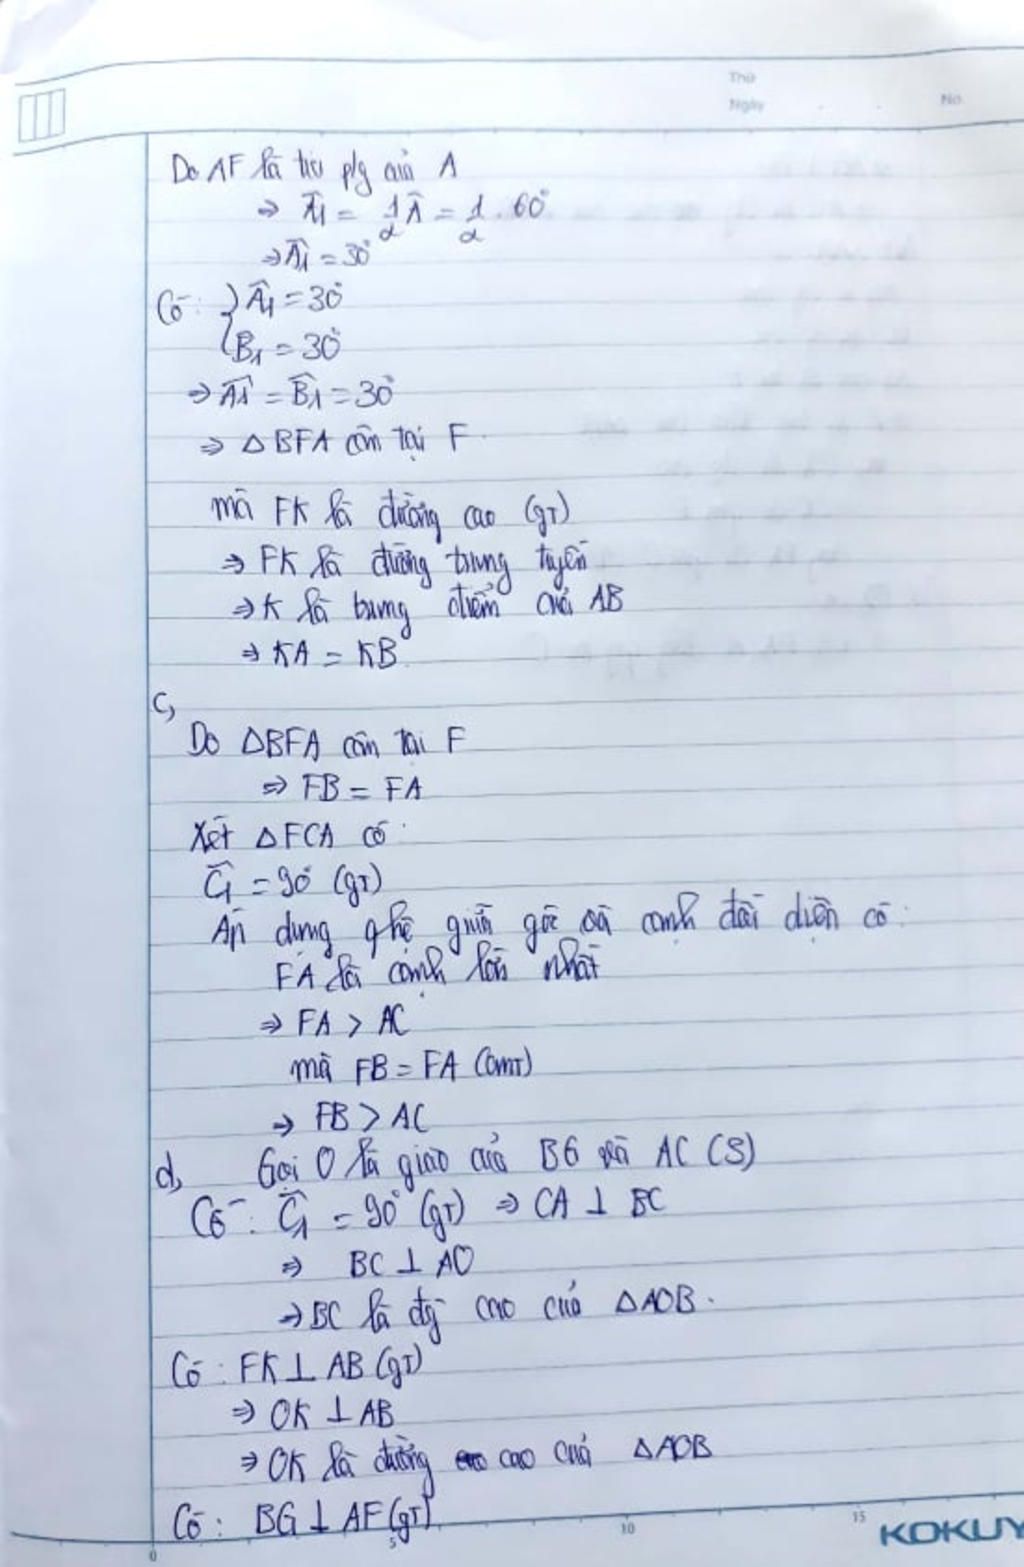 Thứ
Ngày
No.
Do AF là tia p/g của A
⇒ Â1 = 1/2 Â = 1/2 . 60°
⇒ Â1 = 30°
Có: { Â1 = 30°
B1 = 30°
⇒ Â1 = B̂1 = 30°
⇒ △BFA cân tại F.
mà FK là đường cao (gt)
⇒ FK là đường trung tuyến
⇒ K là trung điểm của AB
⇒ KA = KB.
c,
Do △BFA cân tại F
⇒ FB = FA
Xét △FCA có:
Ĉ1 = 90° (gt)
Áp dụng qhệ giữa góc và cạnh đối diện có:
FA là cạnh lớn nhất
⇒ FA > AC
mà FB = FA (cmt)
⇒ FB > AC
d, Gọi O là giao của BG và AC (S)
Có: Ĉ1 = 90° (gt) ⇒ CA ⊥ BC
⇒ BC ⊥ AO
⇒ BC là đg cao của △AOB.
Có: FK ⊥ AB (gt)
⇒ OK ⊥ AB
⇒ OK là đường cao của △AOB
Có: BG ⊥ AF (gt)
0 5 10 15
KOKUY